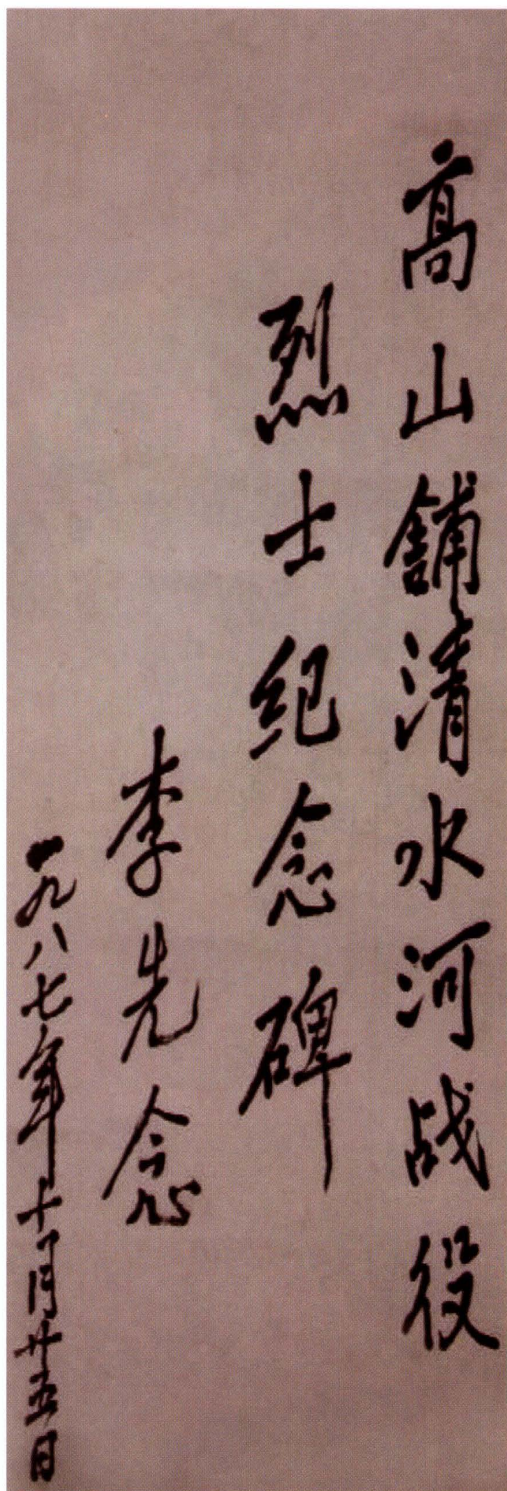 高山舖清水河战役
烈士纪念碑
李先念
一九八七年十月廿五日